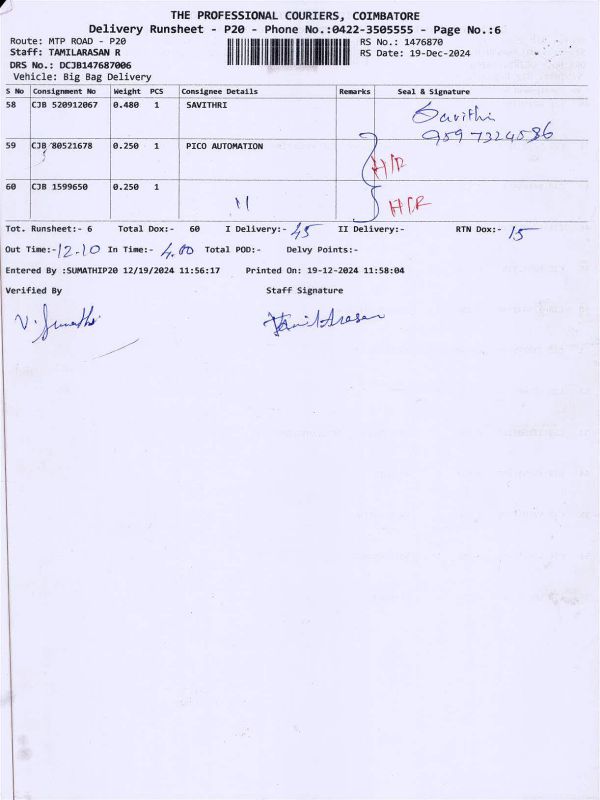 THE PROFESSIONAL COURIERS, COIMBATORE
Delivery Runsheet - P20 - Phone No.:0422-3505555 - Page No.:6
Route: MTP ROAD - P20 RS No.: 1476870
Staff: TAMILARASAN R RS Date: 19-Dec-2024
DRS No.: DCJB147687006
Vehicle: Big Bag Delivery
S No Consignment No Weight PCS Consignee Details Remarks Seal & Signature
58 CJB 520912067 0.480 1 SAVITHRI Savithri
9597324586
59 CJB 80521678 0.250 1 PICO AUTOMATION
60 CJB 1599650 0.250 1 11
Tot. Runsheet:- 6 Total Dox:- 60 I Delivery:- 45 II Delivery:- RTN Dox:- 15
Out Time:- 12.10 In Time:- 4.00 Total POD:- Delvy Points:-
Entered By :SUMATHIP20 12/19/2024 11:56:17 Printed On: 19-12-2024 11:58:04
Verified By Staff Signature
V. Sumathi Tamilarasan